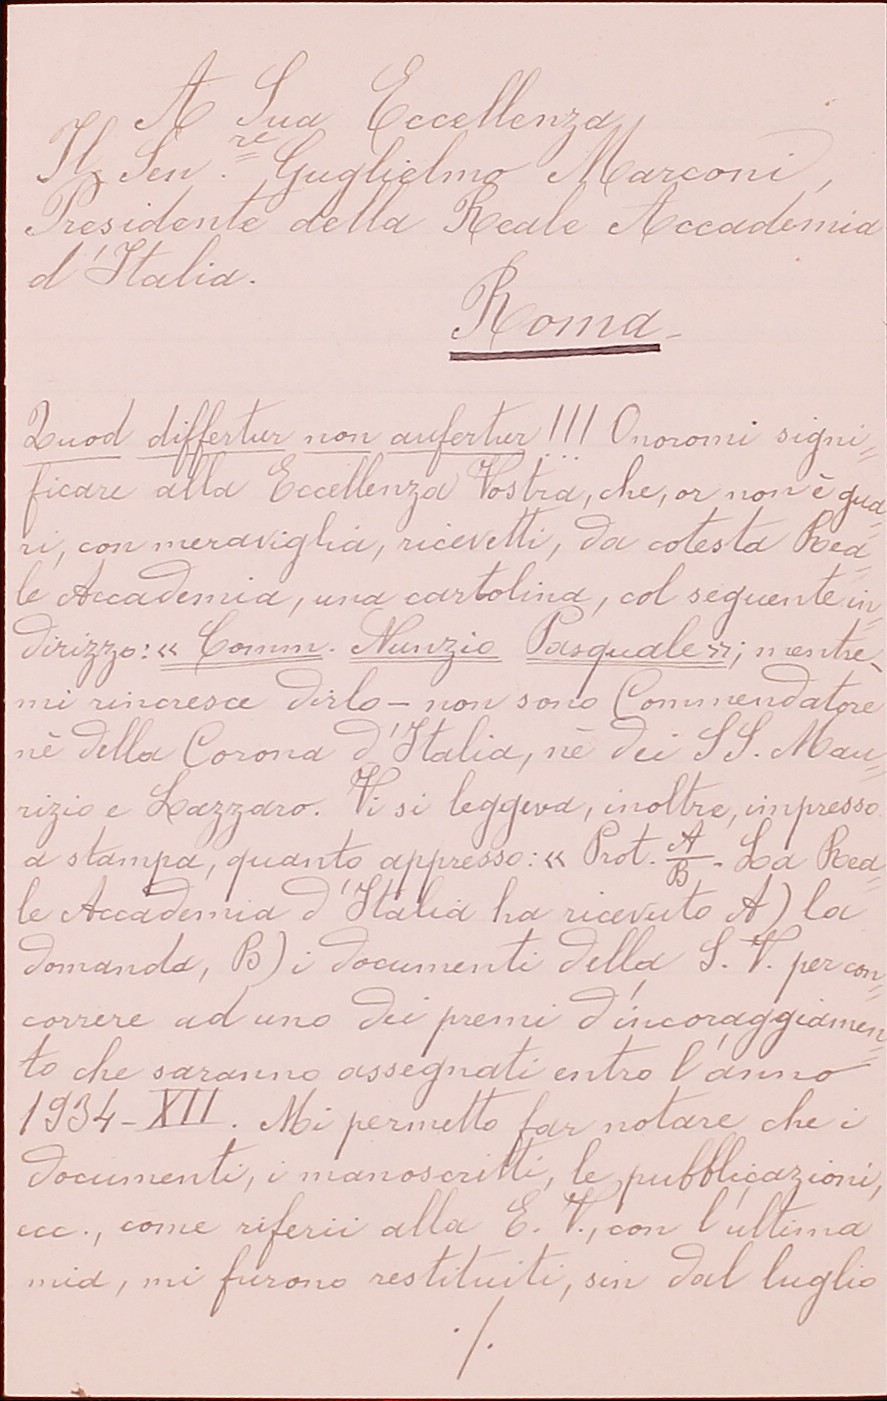 A Sua Eccellenza
Il Sen.re Guglielmo Marconi,
Presidente della Reale Accademia
d'Italia.
Roma-
Quod differtur non aufertur!!! Onoromi signi=
ficare alla Eccellenza Vostra, che, or non è gua=
ri, con meraviglia, ricevetti, da cotesta Rea=
le Accademia, una cartolina, col seguente in=
dirizzo: « Comm. Nunzio Pasquale »; mentre-
mi rincresce dirlo - non sono Commendatore
nè della Corona d'Italia, nè dei SS. Mau=
rizio e Lazzaro. Vi si leggeva, inoltre, impresso
a stampa, quanto appresso: « Prot. A/B - La Rea=
le Accademia d'Italia ha ricevuto A) la
domanda, B) i documenti della S. V. per con=
correre ad uno dei premi d'incoraggiamen=
to che saranno assegnati entro l'anno
1934-XII. Mi permetto far notare che i
documenti, i manoscritti, le pubblicazioni,
ecc., come riferii alla E. V., con l'ultima
mia, mi furono restituiti, sin dal luglio
./.